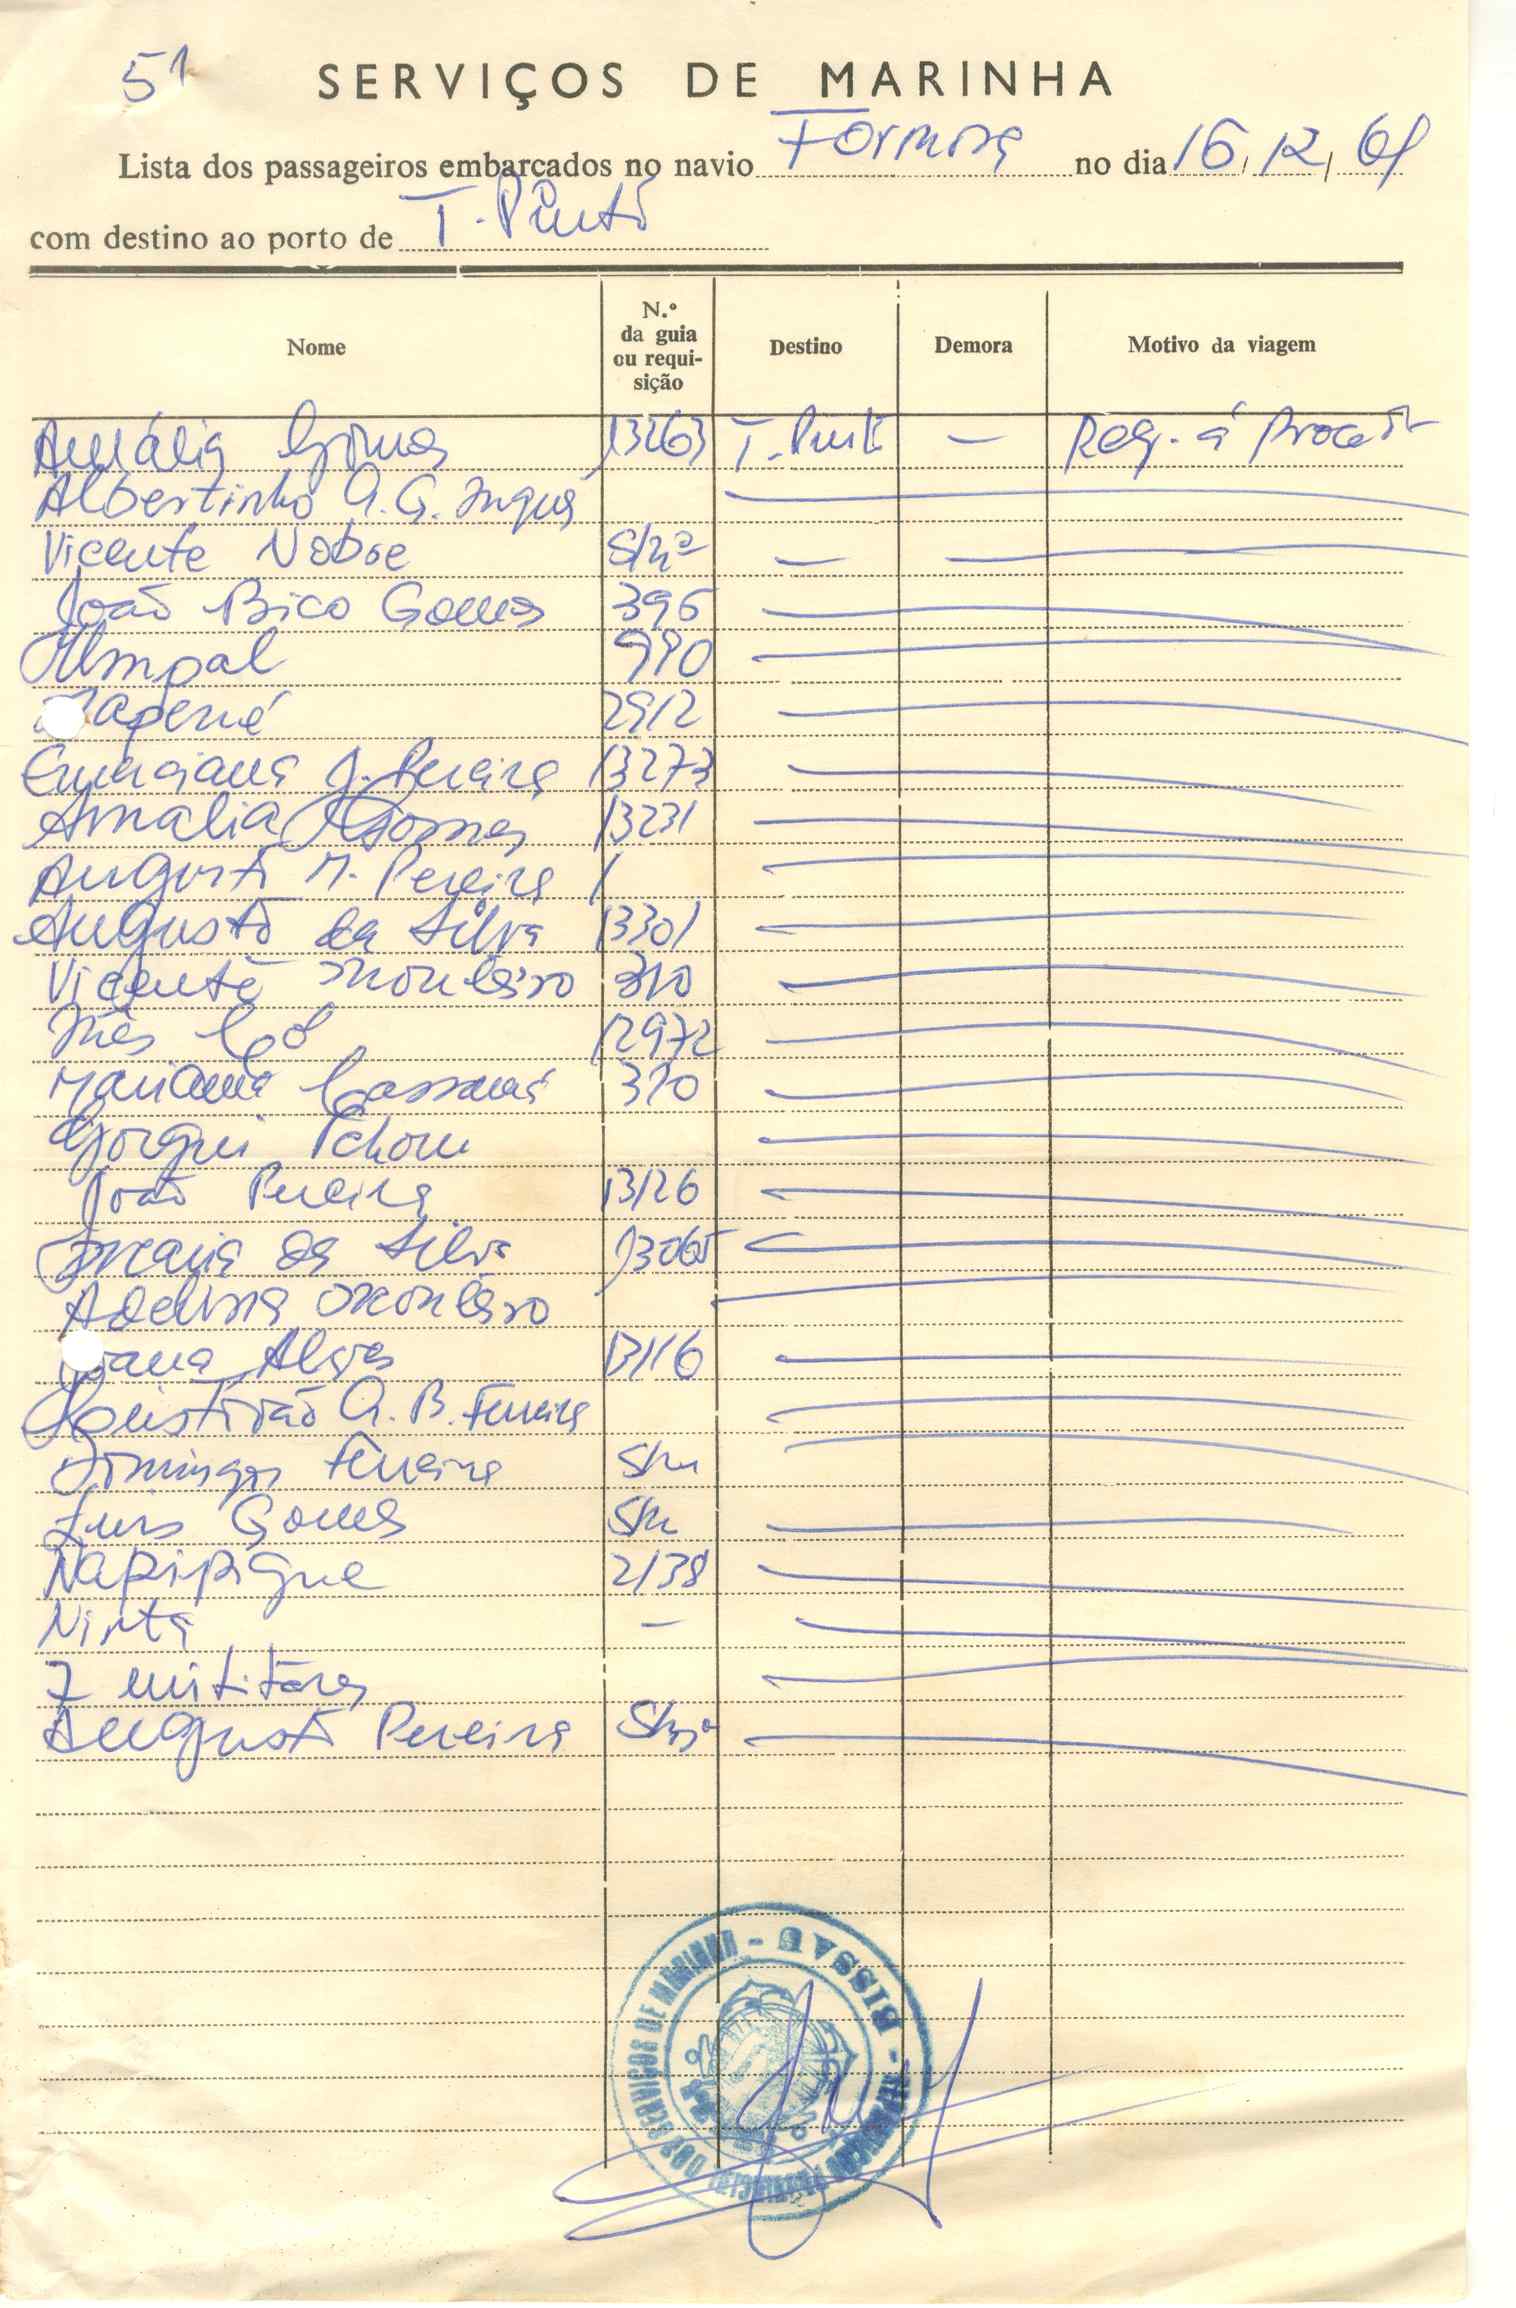 51
SERVIÇOS DE MARINHA
Lista dos passageiros embarcados no navio Formosa no dia 16, 12, 61
com destino ao porto de T. Pinto
Nome
N.º da guia ou requi-sição
Destino
Demora
Motivo da viagem
Amália Gomes 13263 T. Pinto — Reg. á Proced.
Albertinho A. G.
Vicente Nobre S/nº —
João Bico Gomes 396
Umpal 990
2912
Emerciana J. Pereira 13273
Amalia Gomes 13231
Augusto M. Pereira /
Augusto da Silva 13301
Vicente Monteiro 310
Inês Có 12972
Mariama Cassamá 310
Gorgui Tchom
João Pereira 13126
Maria da Silva 13065
Adelina Monteiro
Joana Alves 13116
Cristóvão A. B. Ferreira
Domingos Ferreira S/n
Luis Gomes S/n
Napipique 2138
Ninta —
7 militares
Augusto Pereira S/nº
REPARTIÇÃO PROVINCIAL DOS SERVIÇOS DE MARINHA - BISSAU -